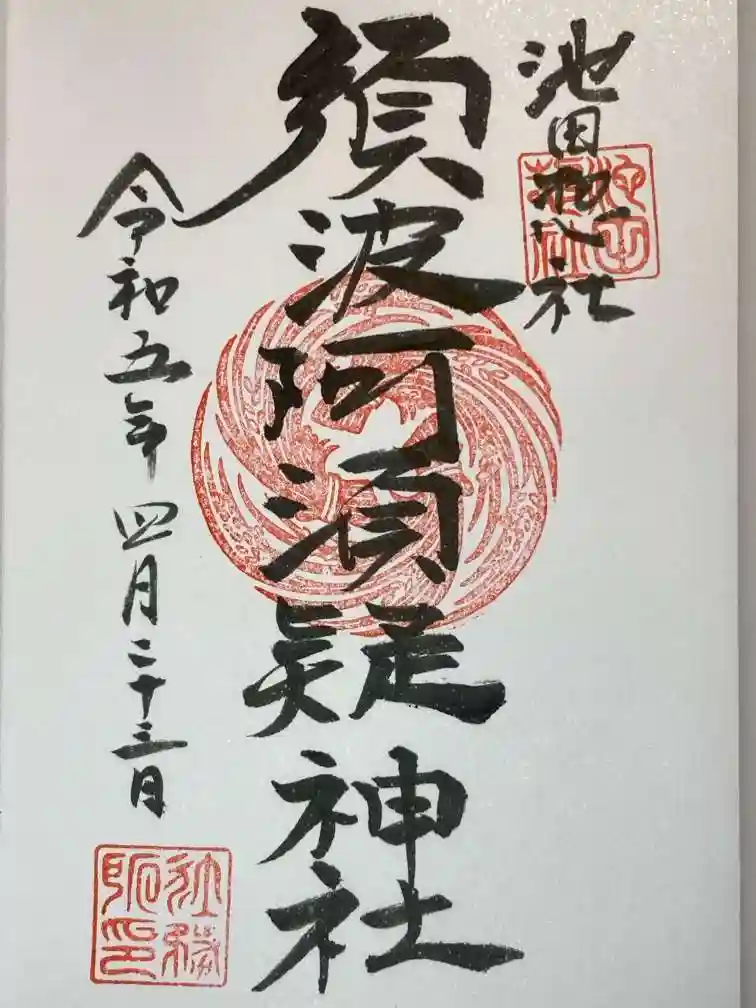 池田惣社
須波阿須疑神社
令和五年四月二十三日
社務所印